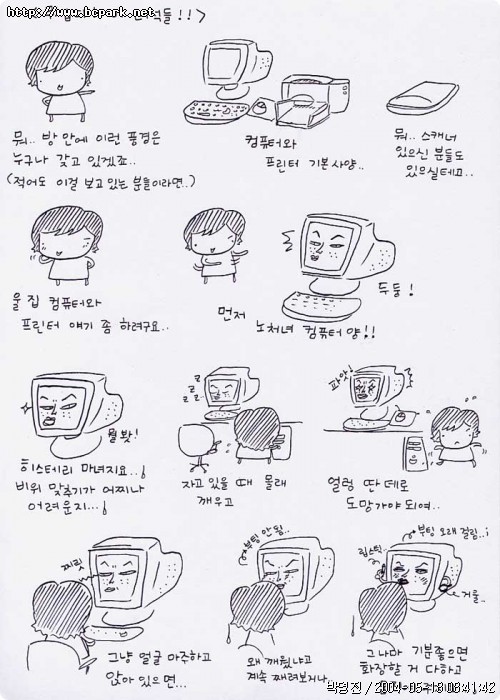 http://www.bcpark.net
들!!>
뭐.. 방 안에 이런 풍경은
누구나 갖고 있겠죠..
(적어도 이걸 보고 있는 분들이라면..)
컴퓨터와
프린터 기본사양..
뭐.. 스캐너
있으신 분들도
있으실테고..
울 집 컴퓨터와
프린터 얘기 좀 하려구요..
두둥!
먼저
노처녀 컴퓨터양!!
뭘봐!
히스테리 마녀지요..!
비위 맞추기가 어찌나
어려운지...!
코
코
코..
자고 있을 때 몰래
깨우고
파앗!
얼렁 딴 데로
도망가야 되여..
찌릿
그냥 얼굴 마주하고
앉아 있으면...
부팅 안됨.
왜 깨웠냐고
계속 째려보거나..
부팅 오래 걸림..;
립스틱..
거울..
그나마 기분좋으면
화장할 거 다하고